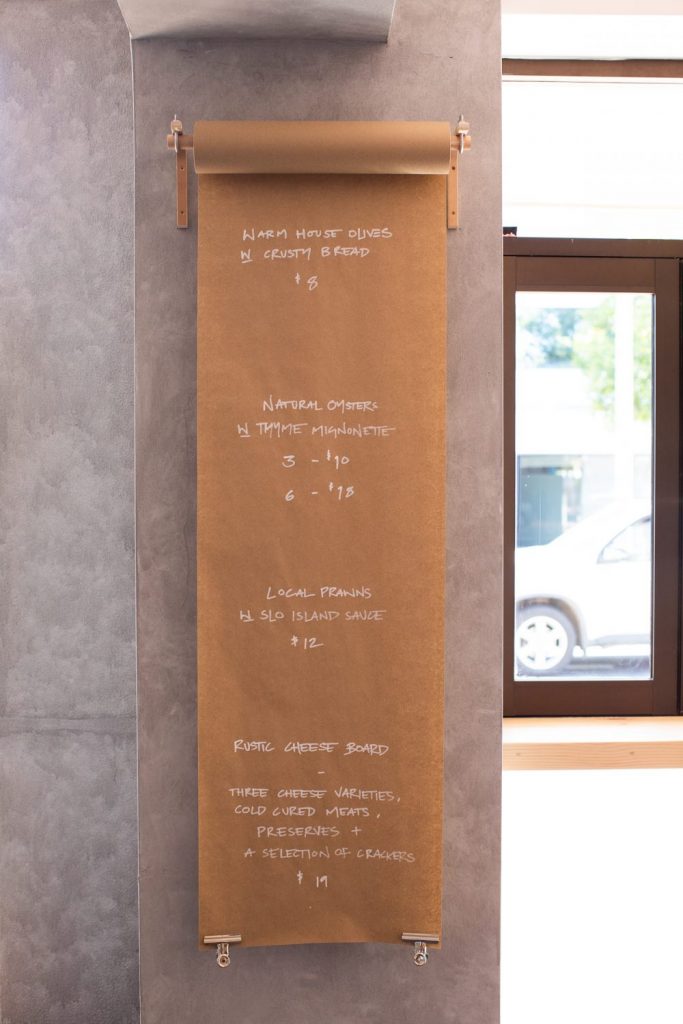 WARM HOUSE OLIVES
W CRUSTY BREAD
$8
NATURAL OYSTERS
W THYME MIGNONETTE
3 - $10
6 - $18
LOCAL PRAWNS
W SLO ISLAND SAUCE
$12
RUSTIC CHEESE BOARD
-
THREE CHEESE VARIETIES,
COLD CURED MEATS,
PRESERVES +
A SELECTION OF CRACKERS
$19